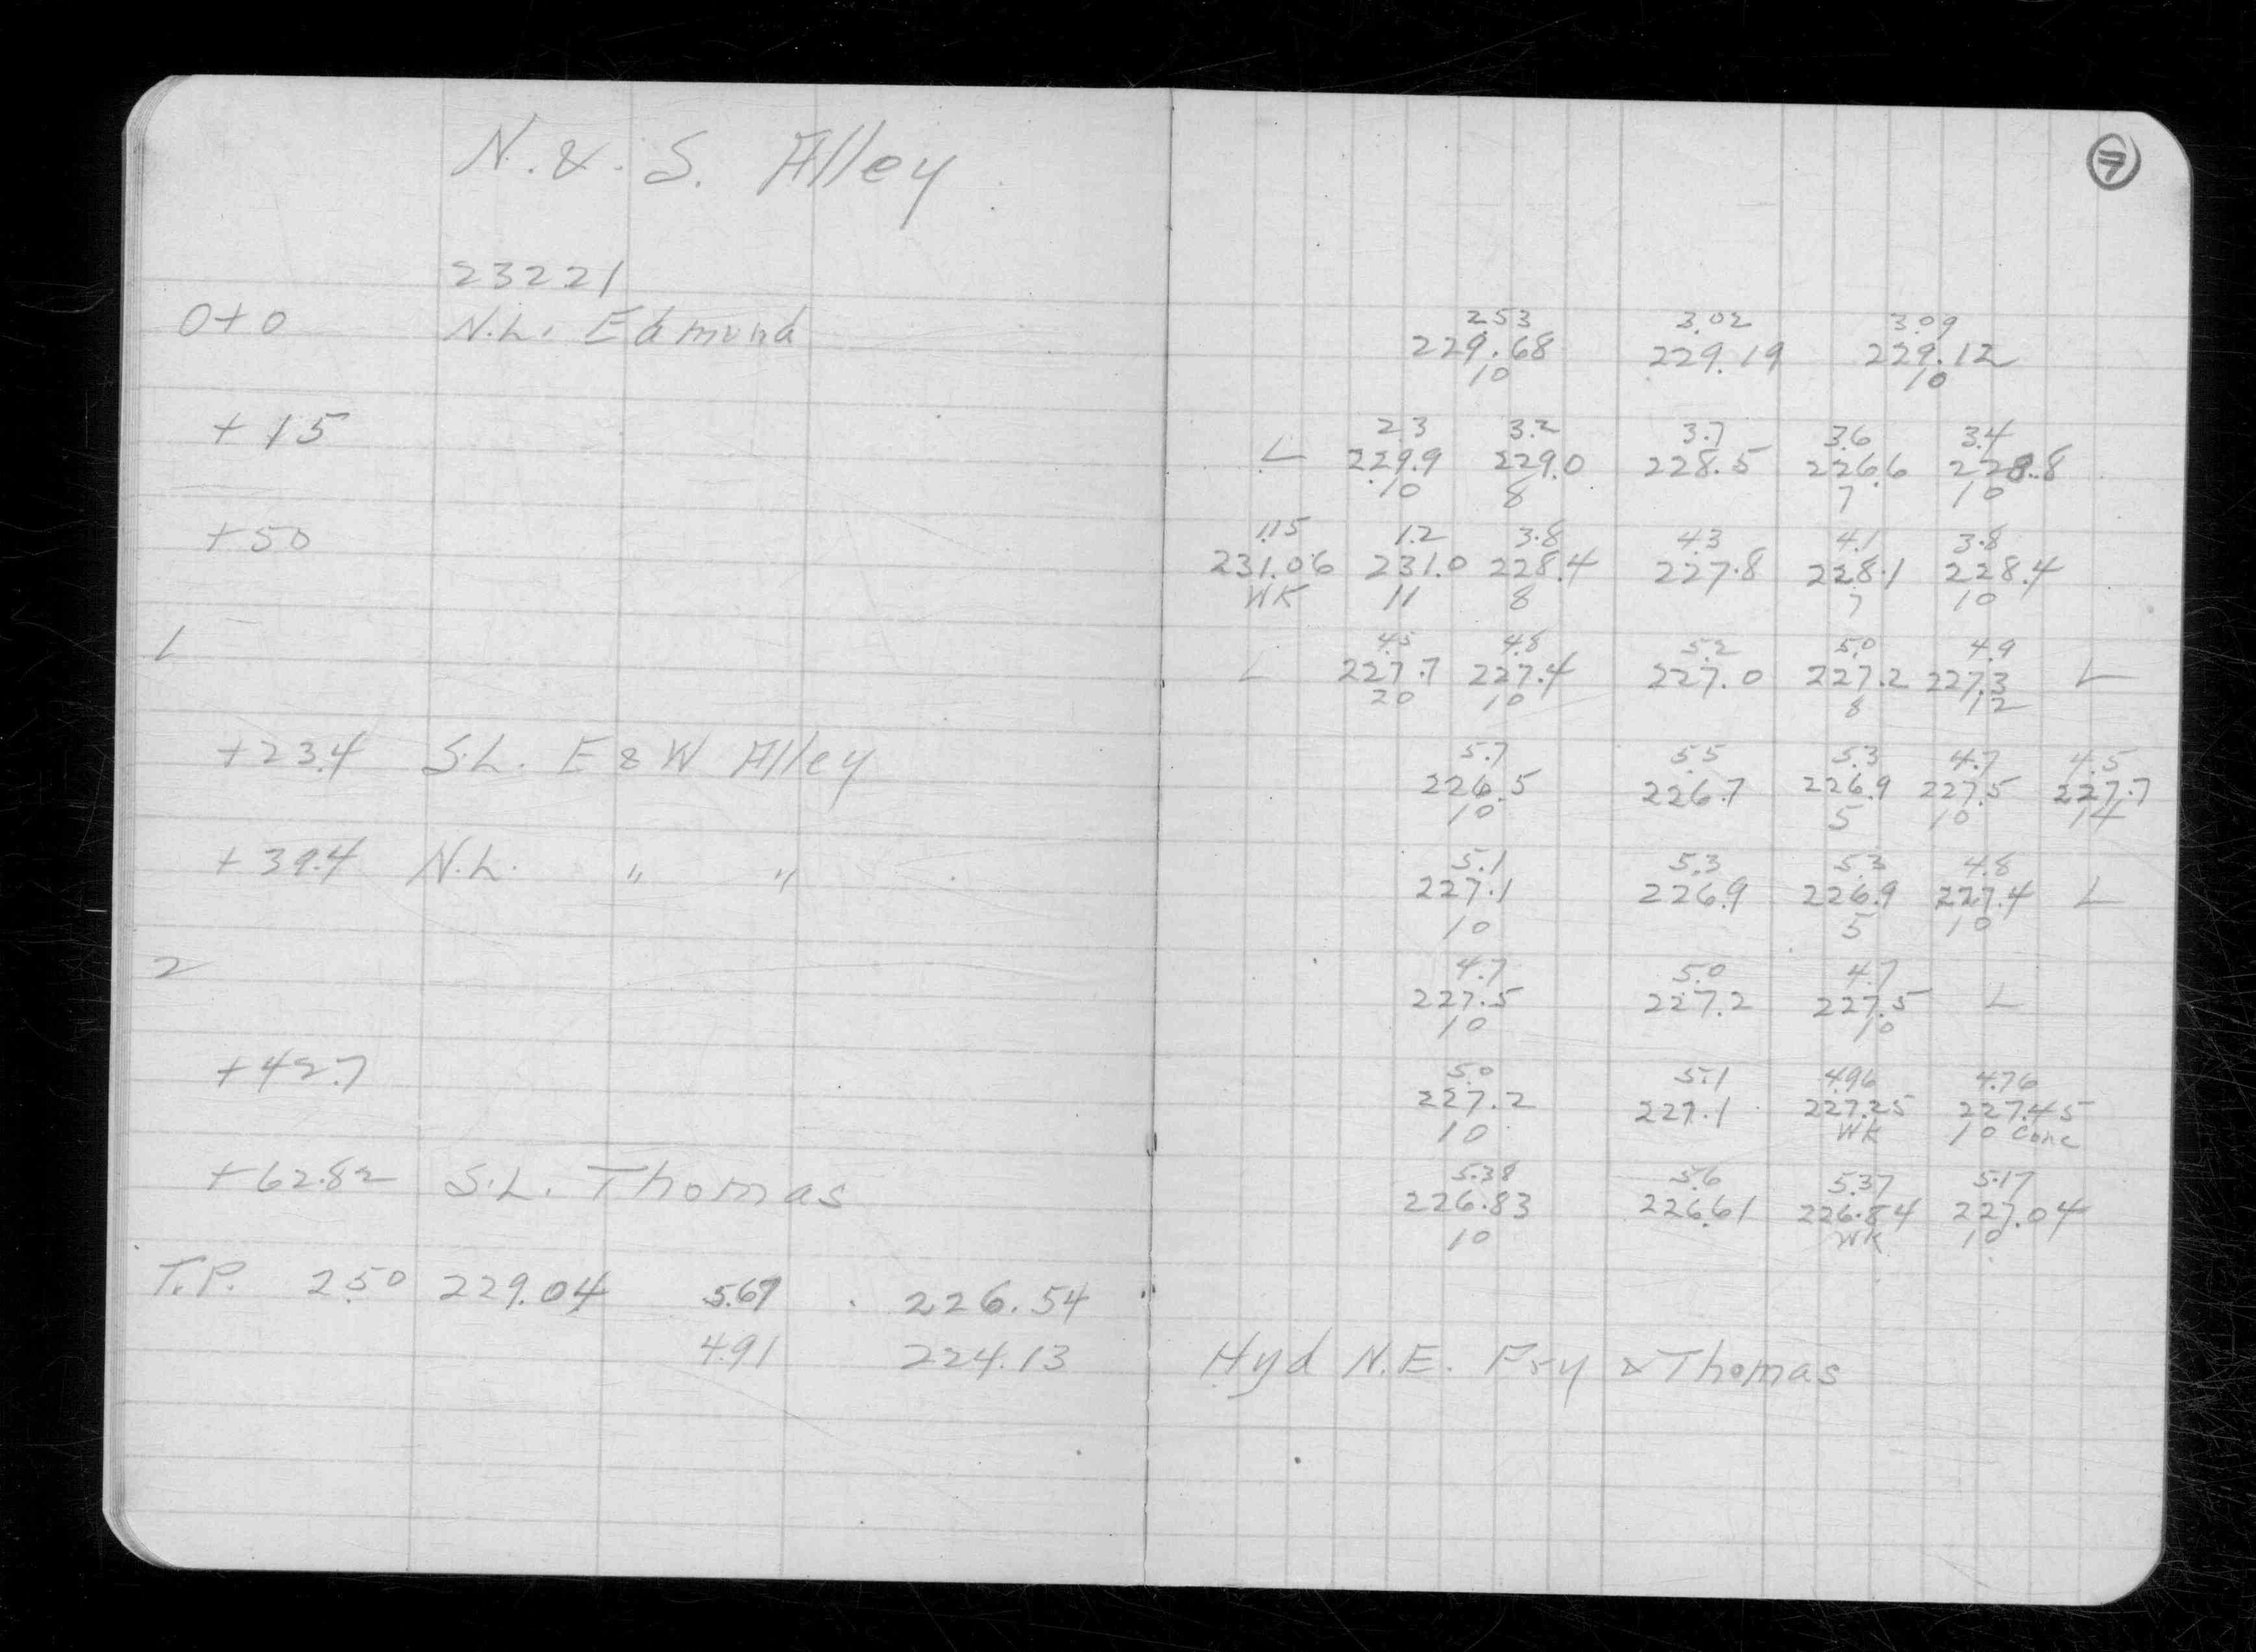 N. & S. Alley
7
23221
0+0 N.L. Edmund
2.53 3.02 3.09
229.68 229.19 229.12
10 10
+15
2.3 3.2 3.7 3.6 3.4
L 229.9 229.0 228.5 226.6 228.8
10 8 7 10
+50
1.15 1.2 3.8 4.3 4.1 3.8
231.06 231.0 228.4 227.8 228.1 228.4
WK 11 8 7 10
1
4.5 4.8 5.2 5.0 4.9
L 227.7 227.4 227.0 227.2 227.3 L
20 10 8 12
+23.4 S.L. E & W Alley
5.7 5.5 5.3 4.7 4.5
226.5 226.7 226.9 227.5 227.7
10 5 10 14
+39.4 N.L. " "
5.1 5.3 5.3 4.8
227.1 226.9 226.9 227.4 L
10 5 10
2
4.7 5.0 4.7
227.5 227.2 227.5 L
10 10
+42.7
5.0 5.1 4.96 4.76
227.2 227.1 227.25 227.45
10 WK 10 Conc
+62.82 S.L. Thomas
5.38 5.6 5.37 5.17
226.83 226.61 226.84 227.04
10 WK 10
T.P. 2.50 229.04 5.67 226.54
4.91 224.13 Hyd N.E. Fry & Thomas